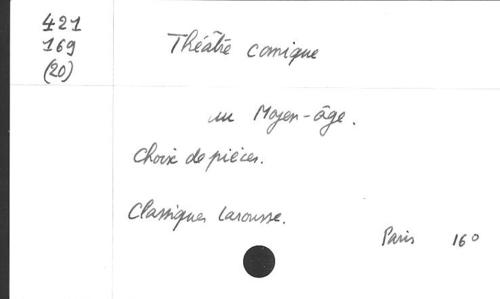 421
169
(20)
Théâtre comique
au Moyen-âge.
Choix de pièces.
Classiques Larousse.
Paris 16°